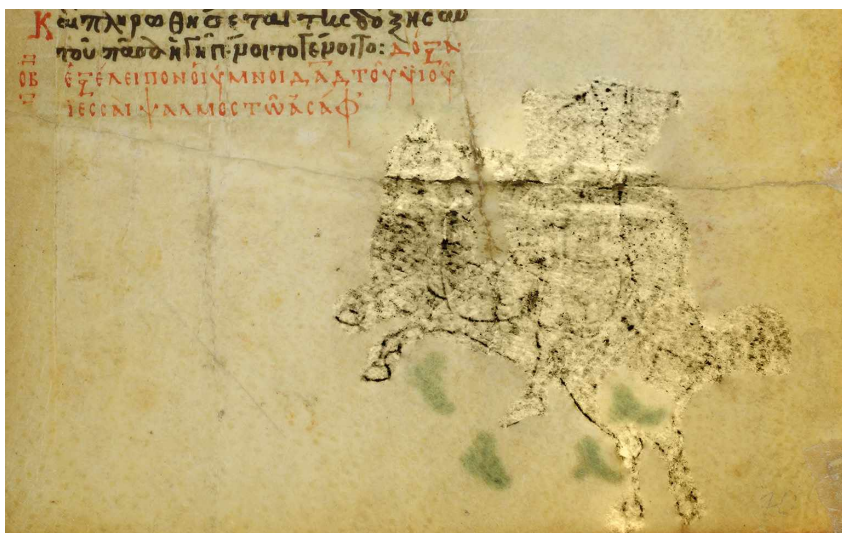 Καὶ πληρωθήσεται τῆς δόξης αὐ
τοῦ πᾶσα ἡ γῆ· γένοιτο γένοιτο: ΔΌΞΑ
ΟΒ ἘΞΕΛΕΙΠΟΝ ΟἹ ὝΜΝΟΙ ΔΑΔ ΤΟΥ ΥἹΟΥ
ἸΕССΑΙ ΨΑΛΜΟС ΤΩ ἈСΑΦ